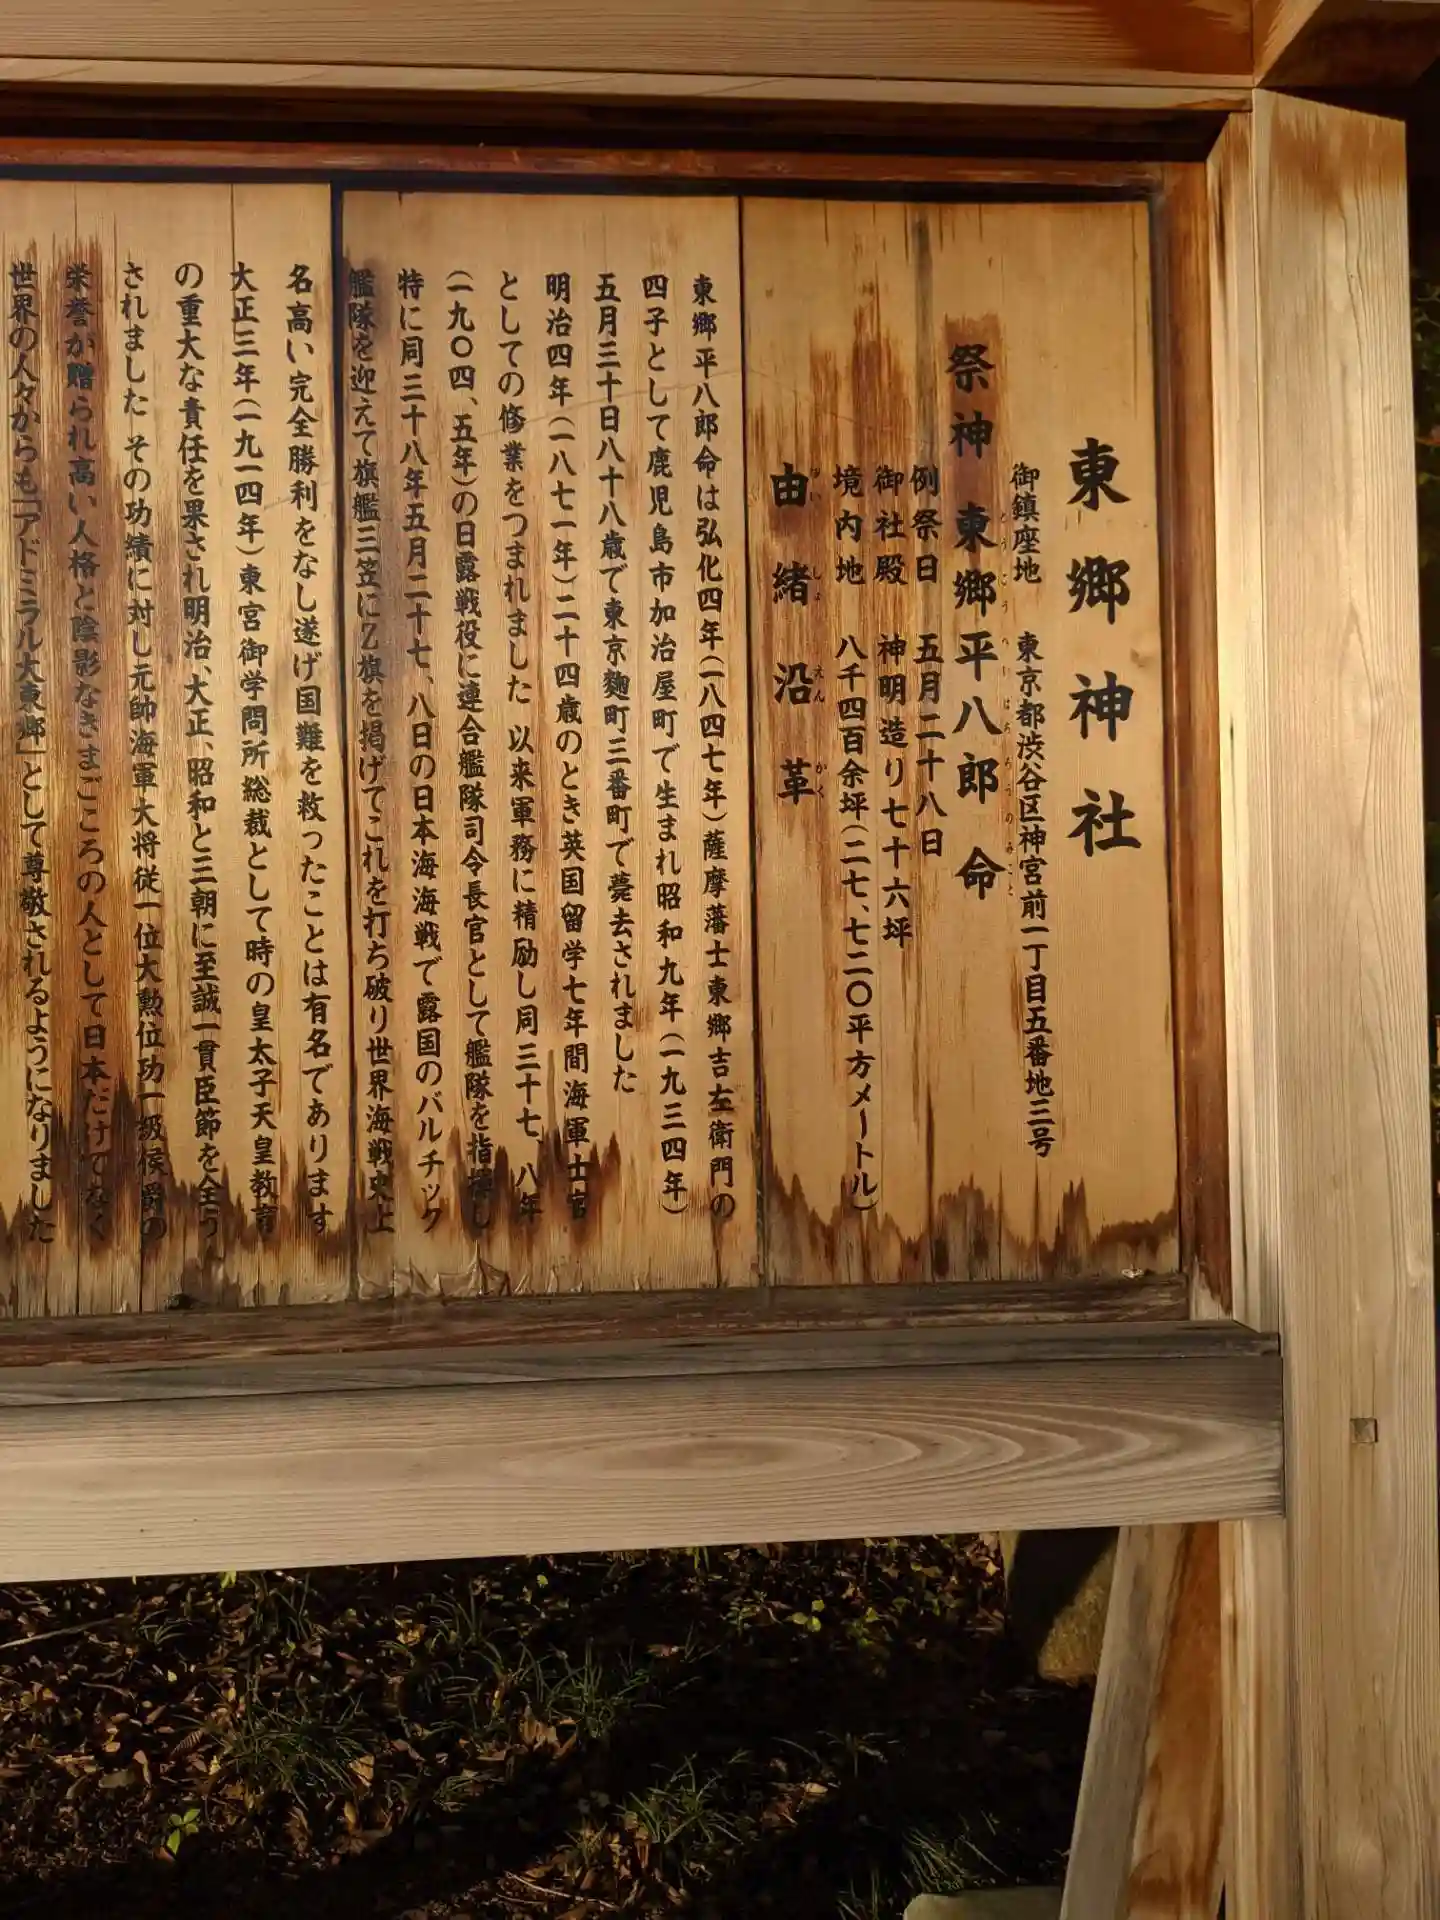 東郷神社
御鎮座地 東京都渋谷区神宮前一丁目五番地三号
祭神 東郷平八郎命
とうごうへいはちろうのみこと
例祭日 五月二十八日
御社殿 神明造り七十六坪
境内地 八千四百余坪(二七、七二〇平方メートル)
由緒沿革
ゆいしょえんかく
東郷平八郎命は弘化四年(一八四七年)薩摩藩士東郷吉左衛門の
四子として鹿児島市加治屋町で生まれ昭和九年(一九三四年)
五月三十日八十八歳で東京麹町三番町で薨去されました
明治四年(一八七一年)二十四歳のとき英国留学七年間海軍士官
としての修業をつまれました 以来軍務に精励し同三十七、八年
(一九〇四、五年)の日露戦役に連合艦隊司令長官として艦隊を指揮し
特に同三十八年五月二十七、八日の日本海海戦で露国のバルチック
艦隊を迎えて旗艦三笠にZ旗を掲げてこれを打ち破り世界海戦史上
名高い完全勝利をなし遂げ国難を救ったことは有名であります
大正三年(一九一四年)東宮御学問所総裁として時の皇太子天皇教育
の重大な責任を果され明治、大正、昭和と三朝に至誠一貫臣節を全う
されました その功績に対し元帥海軍大将従一位大勲位功一級侯爵の
栄誉が贈られ高い人格と陰影なきまごころの人として日本だけでなく
世界の人々からも「アドミラル大東郷」として尊敬されるようになりました